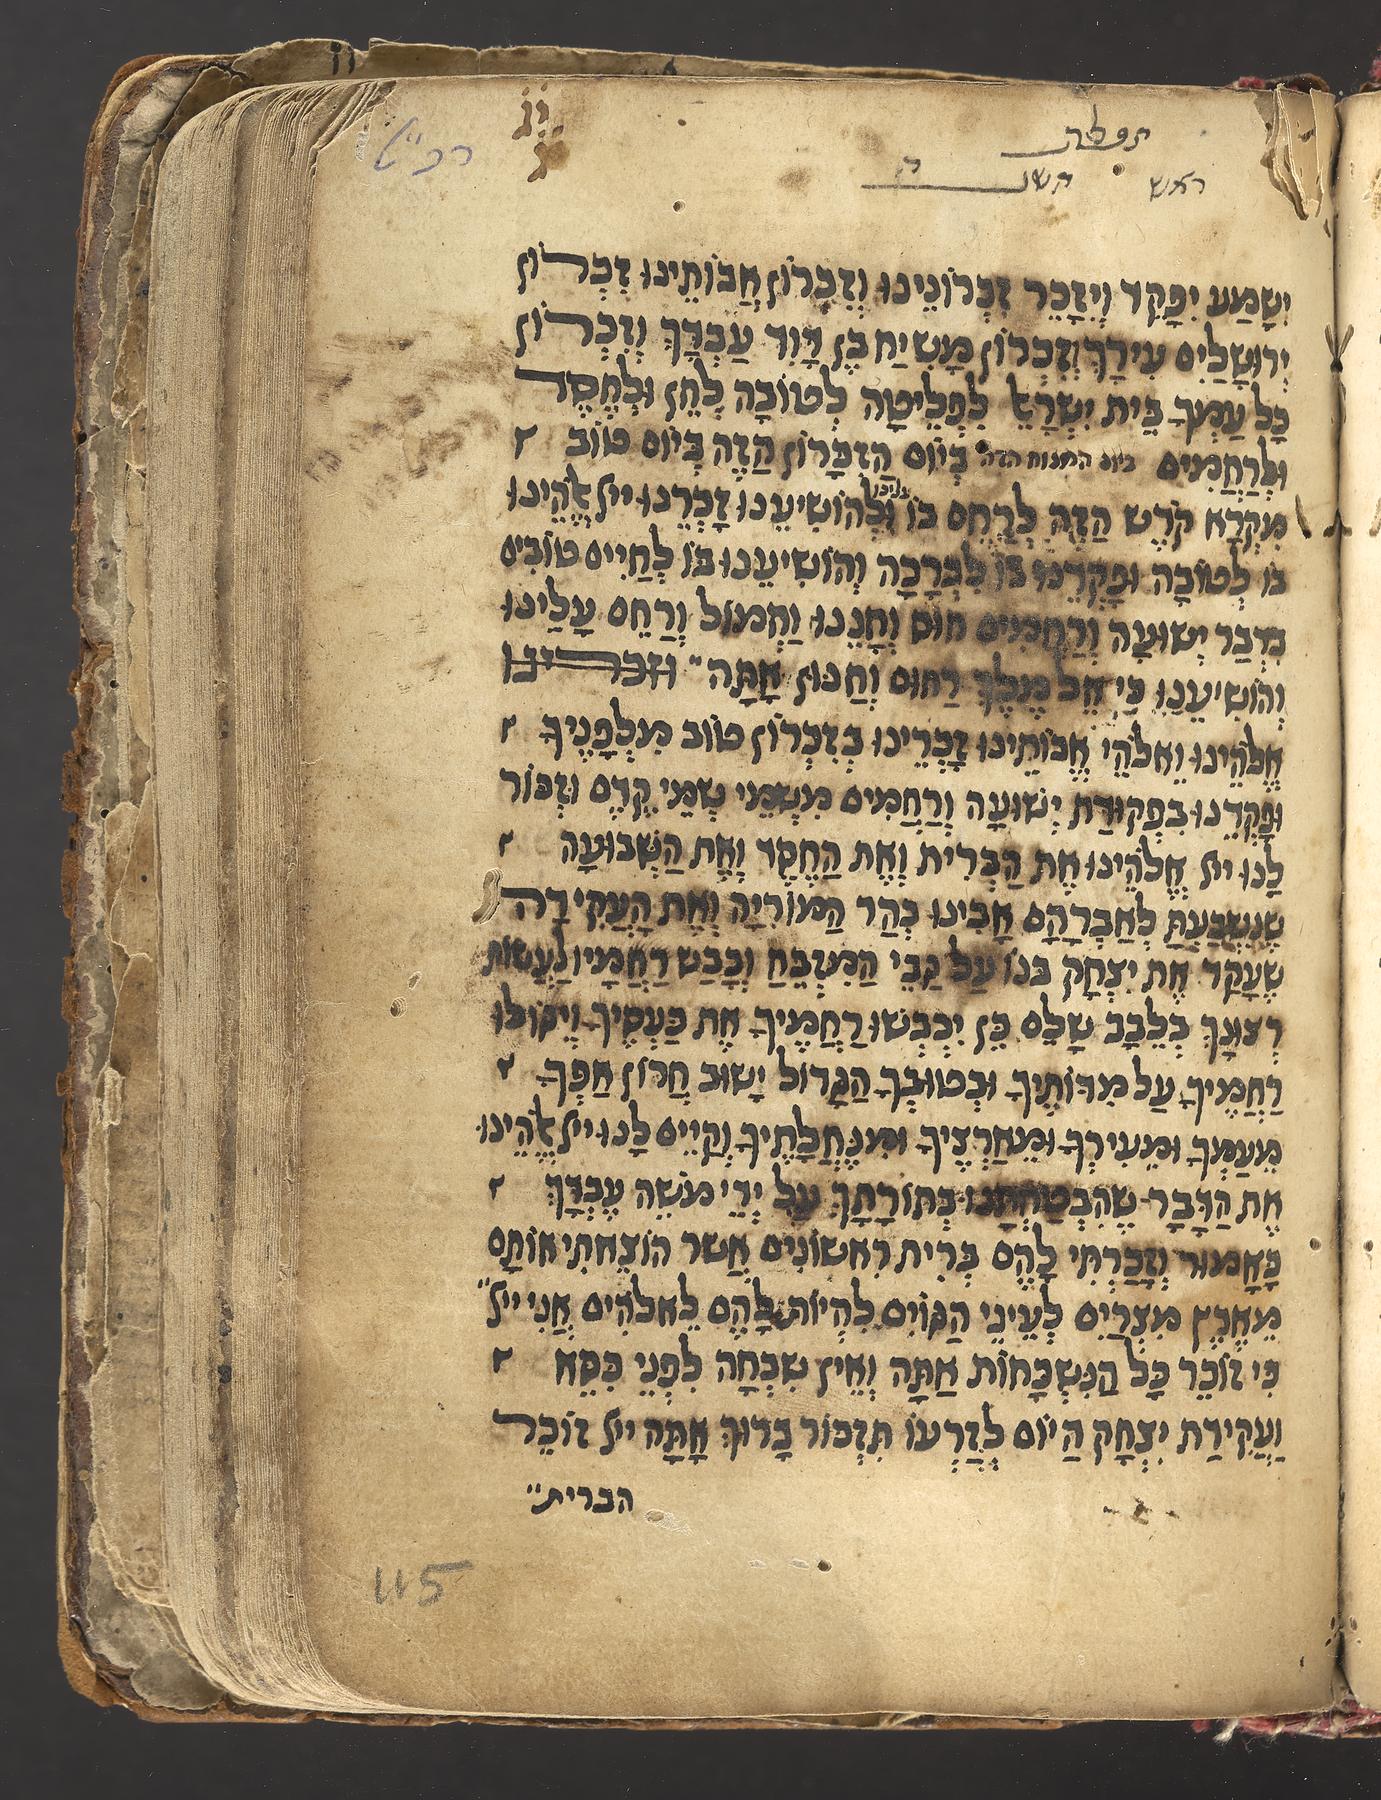 תפלת
ראש השנה
יִשָּׁמַע יִפָּקֵד וְיִזָּכֵר זִכְרוֹנֵינוּ וְזִכְרוֹן אֲבוֹתֵינוּ זִכְרוֹן
יְרוּשָׁלַיִם עִירָךְ וְזִכְרוֹן מָשִׁיַח בֶּן דָּוִד עַבְדָּךְ וְזִכְרוֹן
כָּל עַמְּךָ בֵּית יִשְׂרָאֵל לִפְלֵיטָה לְטוֹבָה לְחֵן וּלְחֶסֶד
וּלְרַחֲמִים ביום המנוח הזה בְּיוֹם הַזִּכָּרוֹן הַזֶּה בְּיוֹם טוֹב
מִקְרָא קֹדֶשׁ הַזֶּה לְרַחֵם בּוֹ עלינו וּלְהוֹשִׁיעֵנוּ זָכְרֵנוּ ייל אֱלֹהֵינוּ
בּוֹ לְטוֹבָה וּפָקְדֵנוּ בוֹ לִבְרָכָה וְהוֹשִׁיעֵנוּ בּוֹ לְחַיִּים טוֹבִים
בִּדְבַר יְשׁוּעָה וְרַחֲמִים חוּס וְחָנֵּנוּ וַחְמוֹל וְרַחֵם עָלֵינוּ
וְהוֹשִׁיעֵנוּ כִּי אֵל מֶלֶךְ רַחוּם וְחַנּוּן אָתָּה״
אֱלֹהֵינוּ וֵאלֹהֵי אֲבוֹתֵינוּ זָכְרֵינוּ בְּזִכְרוֹן טוֹב מִלְּפָנֶיךָ
וּפָקְדֵנוּ בִּפְקוּדַּת יְשׁוּעָה וְרַחֲמִים מִשְּׁמֵי שְׁמֵי קֶדֶם וּזְכוֹר
לָנוּ ייל אֱלֹהֵינוּ אֶת הַבְּרִית וְאֶת הַחֶסֶד וְאֶת הַשְּׁבוּעָה
שֶׁנִּשְׁבַּעְתָּ לְאַבְרָהָם אָבִינוּ בְּהַר הַמּוֹרִיָּה וְאֶת הָעֲקֵידָה
שֶׁעָקַד אֶת יִצְחָק בְּנוֹ עַל גַּבֵּי הַמִּזְבֵּחַ וְכָבַשׁ רַחֲמָיו לַעֲשׂוֹת
רְצוֹנָךְ בְּלֵבָב שָׁלֵם כֵּן יִכְבְּשׁוּ רַחֲמֶיךָ אֶת כַּעְסֶיךָ וְיִגּוֹלּוּ
רַחֲמֶיךָ עַל מִדּוֹתֶיךָ וּבְטוּבְךָ הַגָּדוֹל יָשׁוּב חֲרוֹן אַפְּךָ
מֵעַמְּךָ וּמֵעִירְךָ וּמֵאַרְצֶיךָ וּמִנַּחֲלָתֶיךָ וְקַיֵּים לָנוּ ייל אֱלֹהֵינוּ
אֶת הַדָּבָר שֶׁהִבְטַחְתָּנוּ בְּתוֹרָתָךְ עַל יְדֵי מֹשֶׁה עֶבְדָּךְ
כָּאָמוּר וְזָכַרְתִּי לָהֶם בְּרִית רִאשׁוֹנִים אֲשֶׁר הוֹצֵאתִי אוֹתָם
מֵאֶרֶץ מִצְרַיִם לְעֵינֵי הַגּוֹיִם לִהְיוֹת לָהֶם לֵאלֹהִים אֲנִי ייל״
כִּי זוֹכֵר כָּל הַנִּשְׁכָּחוֹת אַתָּה וְאֵין שִׁכְחָה לִפְנֵי כִסֵּא
וַעֲקֵידַת יִצְחָק הַיּוֹם לְזַרְעוֹ תִּזְכּוֹר בָּרוּךְ אָתָּה ייל זוֹכֵר
הברית״
115